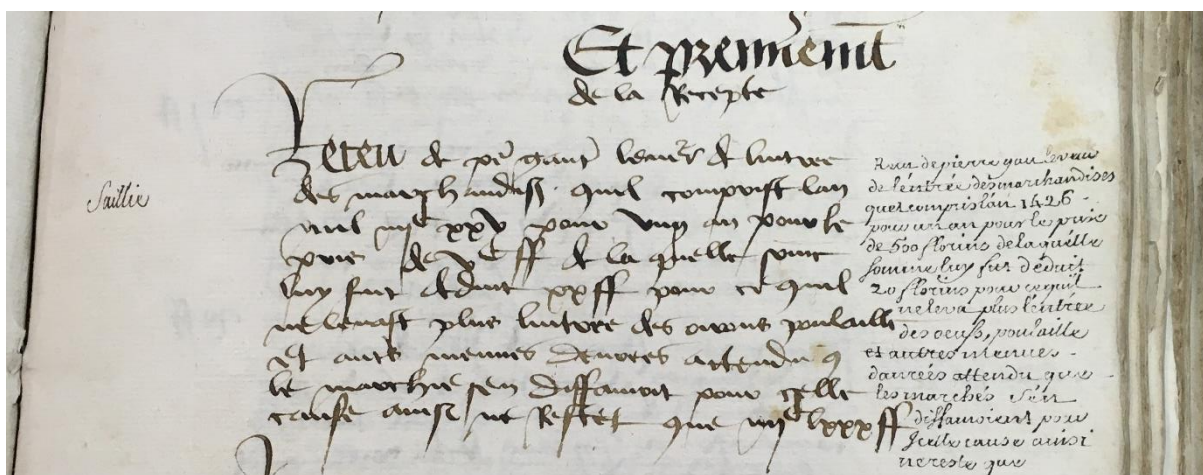 Et premierement
de la Recepte
Saillie
Receu de pe gant leveur de lintree
des marchandises quil comprist lan
mil iiijc xxv pour ung an pour le
pris de vc ff de la quelle some
luy fut deduit xx ff pour ce quil
ne levast plus lintree des ovons poulaille
et autres menues denrees attendu q
le marchie sen diffamoit pour celle
cause ainsi ne Restet que iiijc lxxx ff
de pierre gau
de l'entrée des marchandises
quel compris l'an 1426
pour un an pour le prix
de 500 florins de laquelle
somme luy fut déduit
20 florins pour ce qu'il
ne leva plus l'entrée
des oeufs, poulaille
et autres menues
danrées attendu que
les marchés s'en
diffamoient pour
Jcelle cause ainsi
ne reste que